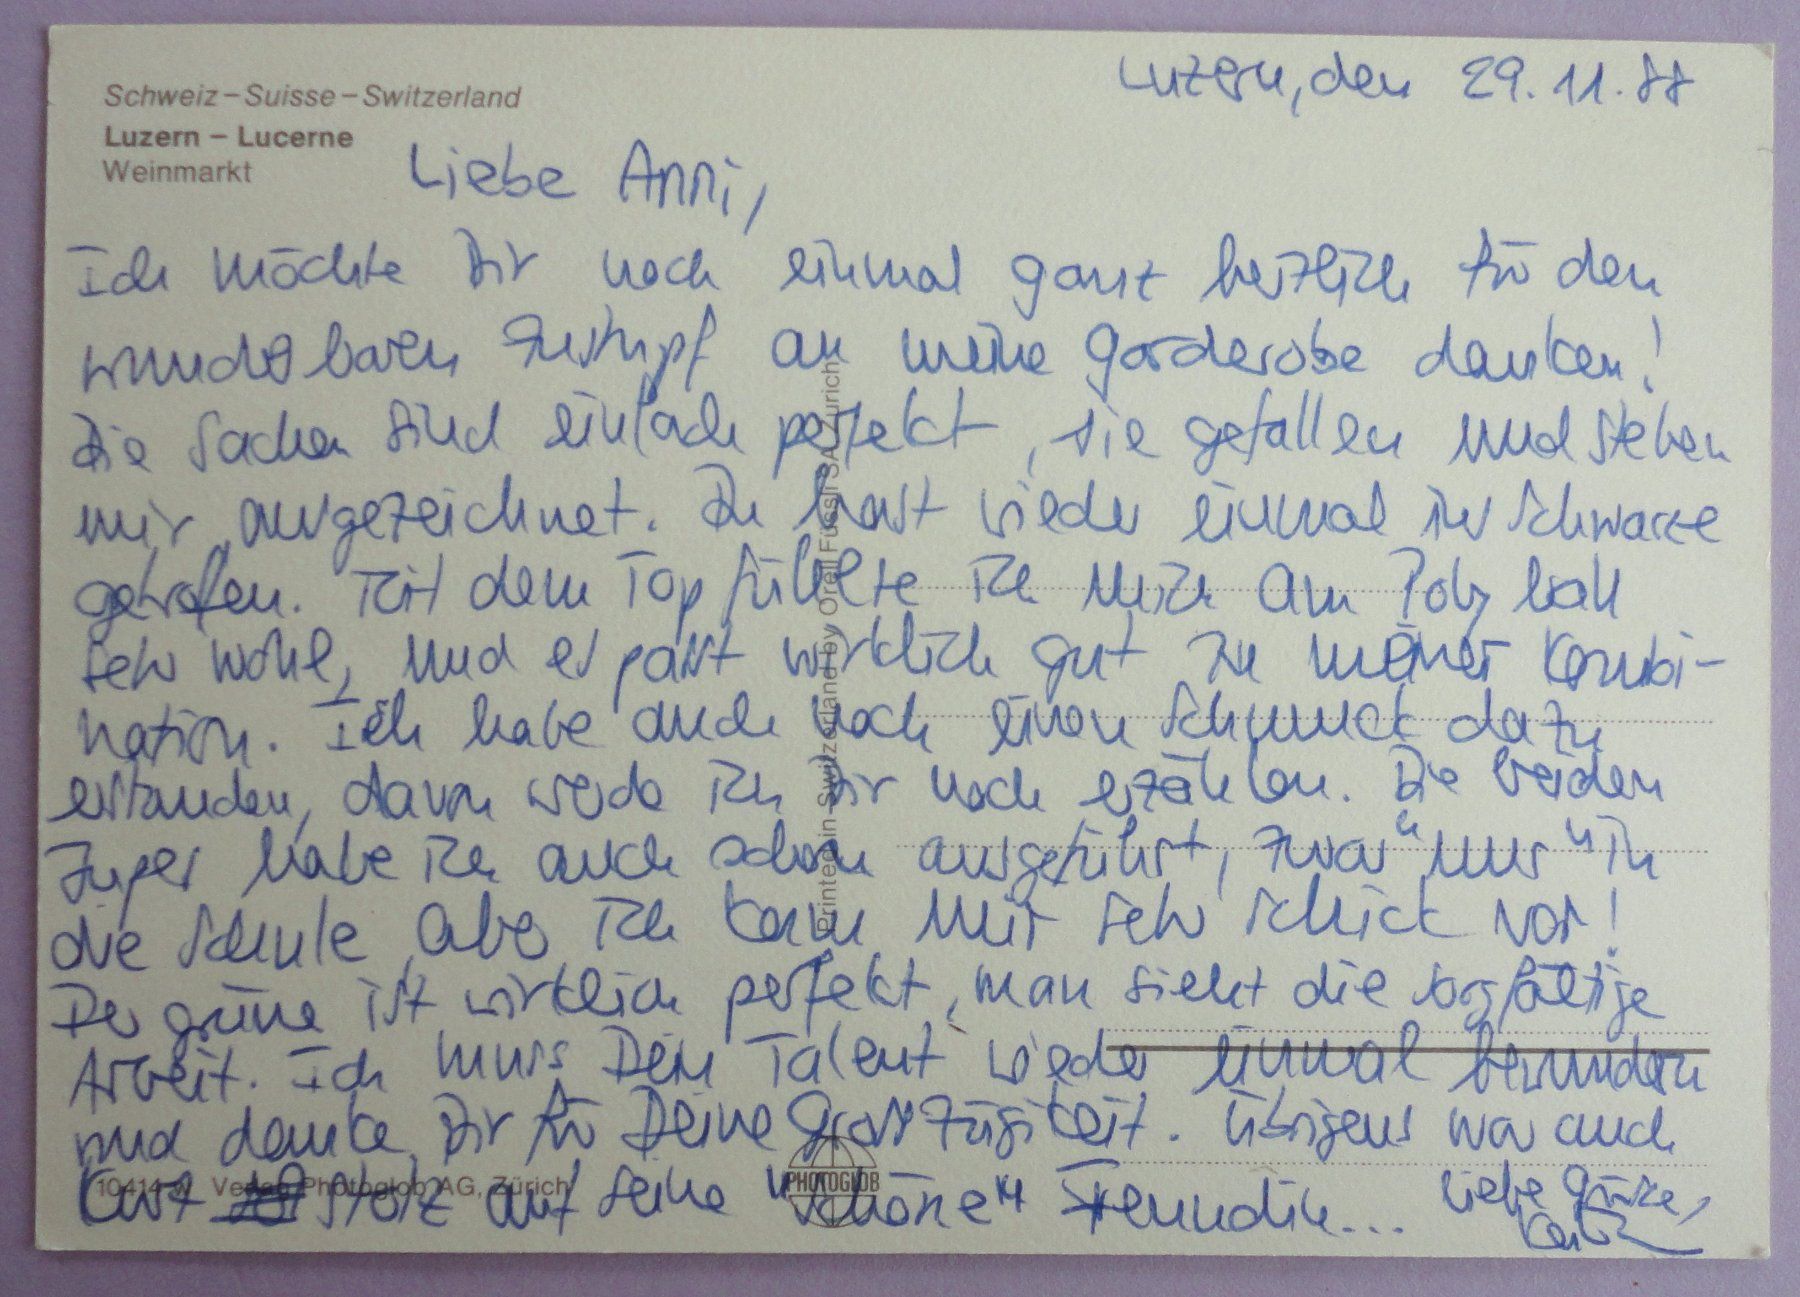 Schweiz – Suisse – Switzerland
Luzern – Lucerne
Weinmarkt
Luzern, den 29.11.88
Liebe Anni,
Ich möchte Dir noch einmal ganz herzlich für den
wunderbaren Zustupf an meine Garderobe danken!
Die Sachen sind einfach perfekt, sie gefallen und stehen
mir ausgezeichnet. Du hast wieder einmal ins Schwarze
getroffen. Mit dem Top fühlte ich mich am Polyball
sehr wohl, und er passt wirklich gut zu meiner Kombi-
nation. Ich habe auch noch einen Schmuck dazu
erstanden, davon werde ich Dir noch erzählen. Die beiden
Jupes habe ich auch schon ausgeführt, zwar "nur" in
die Schule, aber ich kam mir sehr schick vor!
Der grüne ist wirklich perfekt, man sieht die sorgfältige
Arbeit. Ich muss Dein Talent wieder einmal bewundern
und danke Dir für Deine Grosszügigkeit. Übrigens war auch
stolz auf seine "schöne" Freundin... Liebe Grüsse,
Printed in Switzerland by Orell Füssli SA Zürich
Verlag Photoglob AG, Zürich
PHOTOGLOB